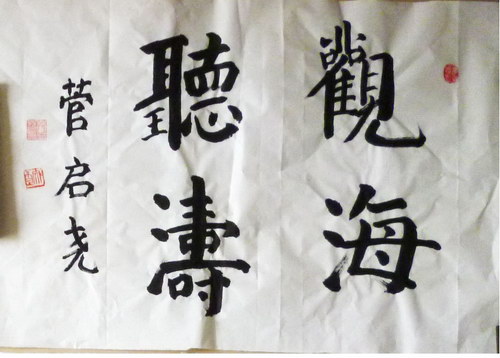 觀海
聽濤
菅启尧